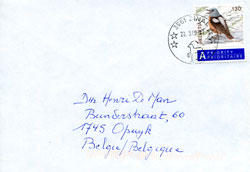 130
A PRIORITY
PRIORITAIRE
Dr Henri De Man
Bunderstraat, 60
1745 Opwijk
Belgie/Belgique